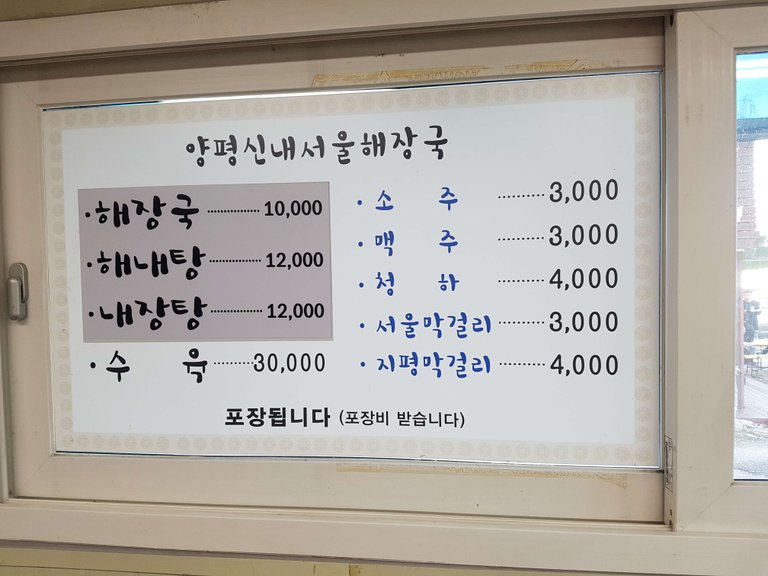 양평신내서울해장국
·해장국 ················ 10,000
·해내탕 ··············· 12,000
·내장탕 ··············· 12,000
· 수 육 ········· 30,000
· 소 주 ·········· 3,000
· 맥 주 ·········· 3,000
· 청 하 ·········· 4,000
· 서울막걸리 ·········· 3,000
· 지평막걸리 ·········· 4,000
포장됩니다 (포장비 받습니다)